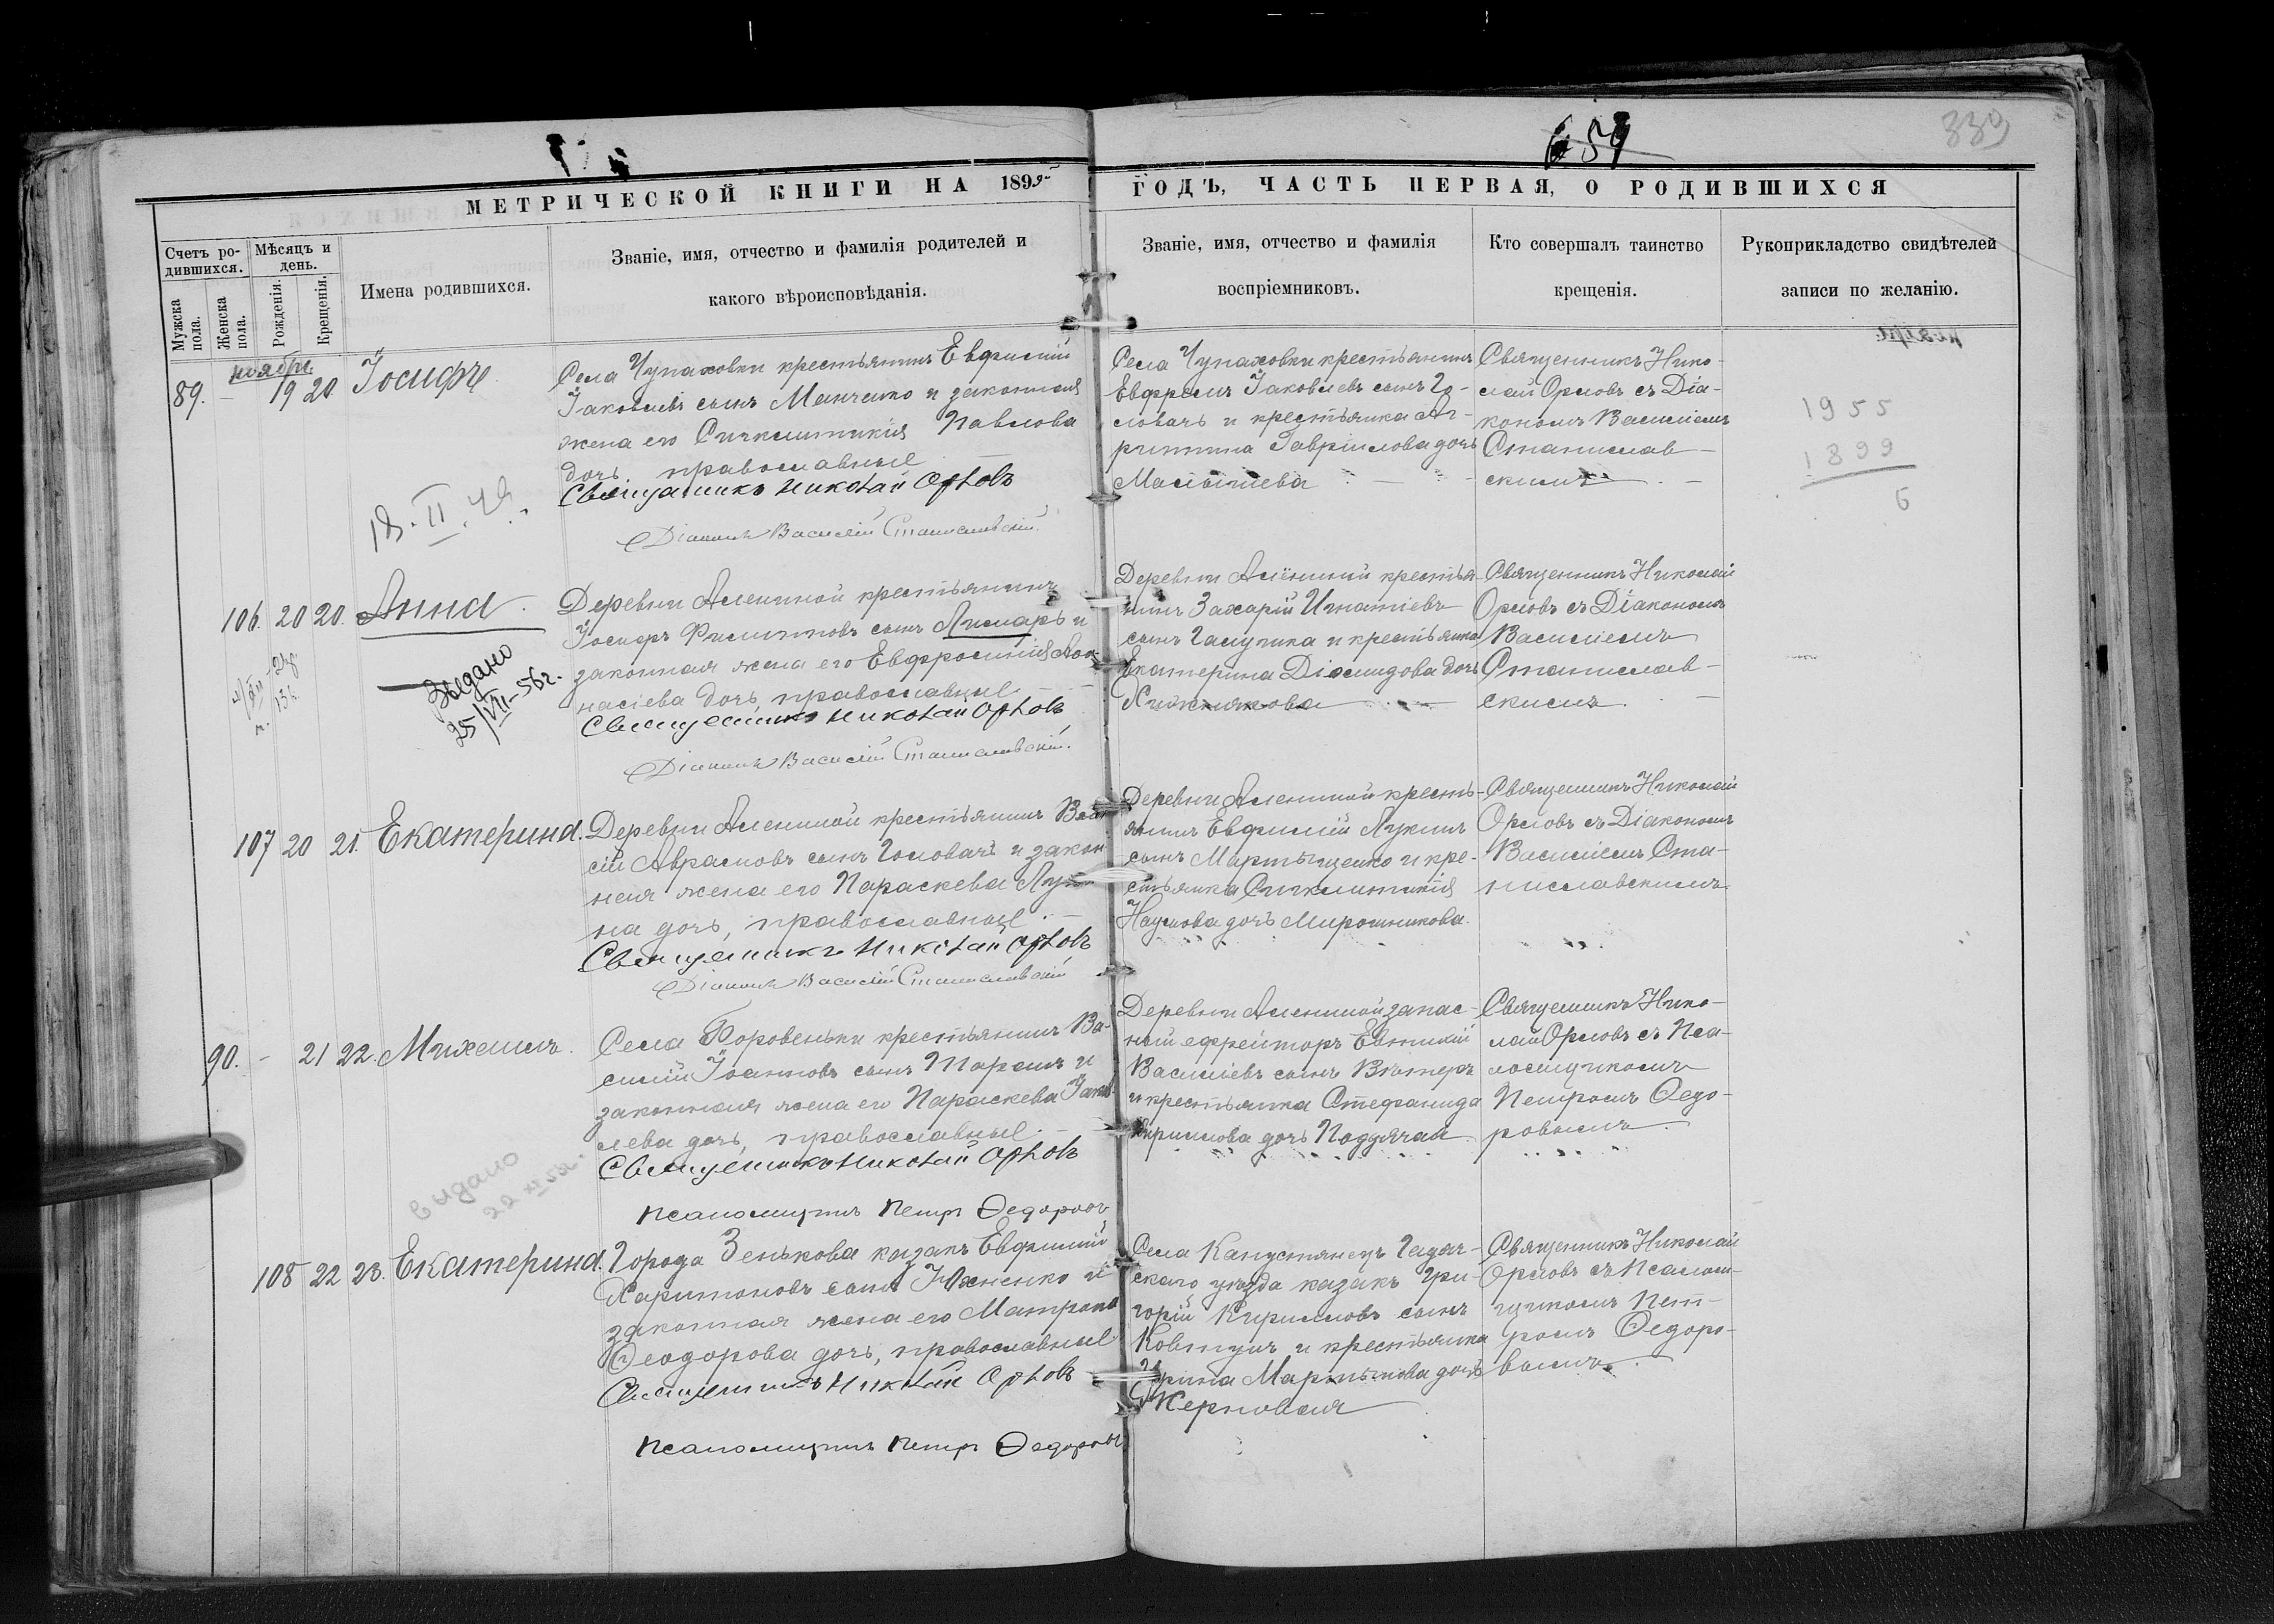 659
339
МЕТРИЧЕСКОЙ КНИГИ НА 1899
ГОДЪ, ЧАСТЬ ПЕРВАЯ, О РОДИВШИХСЯ
Счетъ ро-
дившихся.
Мужска
пола.
Женска
пола.
Мѣсяцъ и
день.
Рожденія.
Крещенія.
Имена родившихся.
Званіе, имя, отчество и фамилія родителей и
какого вѣроисповѣданія.
Званіе, имя, отчество и фамилія
воспріемниковъ.
Кто совершалъ таинство
крещенія.
Рукоприкладство свидѣтелей
записи по желанію.
ноябрь
89. - 19 20. Іосифъ
Села Чупаховки крестьянинъ Евфимій
Іаковлевъ сынъ Манченко и законная
жена его Синклитикія Павлова
дочь православные
Священникъ Николай Орловъ
Діаконъ Василій Станиславскій.
Села Чупаховки крестьянинъ
Евфремъ Іаковлевъ сынъ Го-
ловачь и крестьянка Аг-
рипина Гавріилова дочь
Малышева
Священникъ Нико-
лай Орловъ съ Діа-
кономъ Василіемъ
Станислав-
скимъ
1955
1899
6
18. II. 49.
106. 20 20. Анна
Деревни Алениной крестьянинъ
Іосифъ Филипповъ сынъ Лимаръ и
законная жена его Евфросинія Афа-
насіева дочь, православные
Священникъ Николай Орловъ
Діаконъ Василій Станиславскій.
Выдано
25/VII-56г.
Деревни Алениной крестья-
нинъ Захарій Игнатіевъ
сынъ Галушка и крестьянка
Екатерина Діомидова дочь
Хижнякова
Священникъ Николай
Орловъ съ Діакономъ
Василіемъ
Станислав-
скимъ
107 20 21. Екатерина.
Деревни Алениной крестьянинъ Ва
сій Аврамовъ сынъ Головачь и закон
ная жена его Параскева Лук
на дочь, православные
Священникъ Николай Орловъ
Діаконъ Василій Станиславскій
Деревни Алениной кресть-
янинъ Евфимій Лукинъ
сынъ Мартыщенко и кре-
стьянка Синклитикія
Наумова дочь Мирошникова.
Священникъ Николай
Орловъ съ Діакономъ
Василіемъ Ста-
ниславскимъ
90. - 21 22. Михаилъ.
Села Боровеньки крестьянинъ Ва-
силій Іоанновъ сынъ Таранъ и
законная жена его Параскева Іаков
лева дочь, православные.
Священникъ Николай Орловъ
псаломщикъ Петръ Ѳедоровъ
выдано
Деревни Алениной запас-
ный ефрейторъ Евтихій
Василіевъ сынъ
и крестьянка Стефанида
Кириллова дочь Поддячая
Священникъ Нико-
лай Орловъ съ Пса-
ломщикомъ
Петромъ Ѳедо-
ровымъ
108 22 23. Екатерина.
Города Зенькова казакъ Евфимій
Харитоновъ сынъ Юхненко и
законная жена его Матрона
Ѳеодорова дочь, православные
Священникъ Николай Орловъ
псаломщикъ Петръ Ѳедоровъ
Села Капустянецъ Гадяч-
скаго уѣзда казакъ Гри-
горій Кирилловъ сынъ
Ковтунъ и крестьянка
Ирина Мартынова дочь
Жерновая
Священникъ Николай
Орловъ съ Псалом-
щикомъ Пет-
ромъ Ѳедоро-
вымъ.